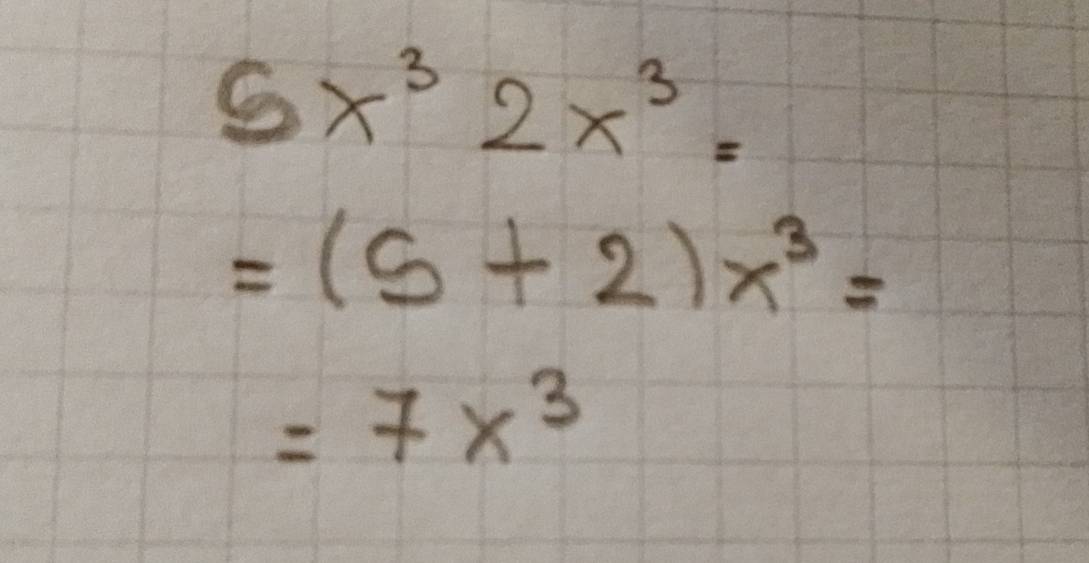 5x³ 2x³ =
= (5 + 2)x³ =
= 7x³